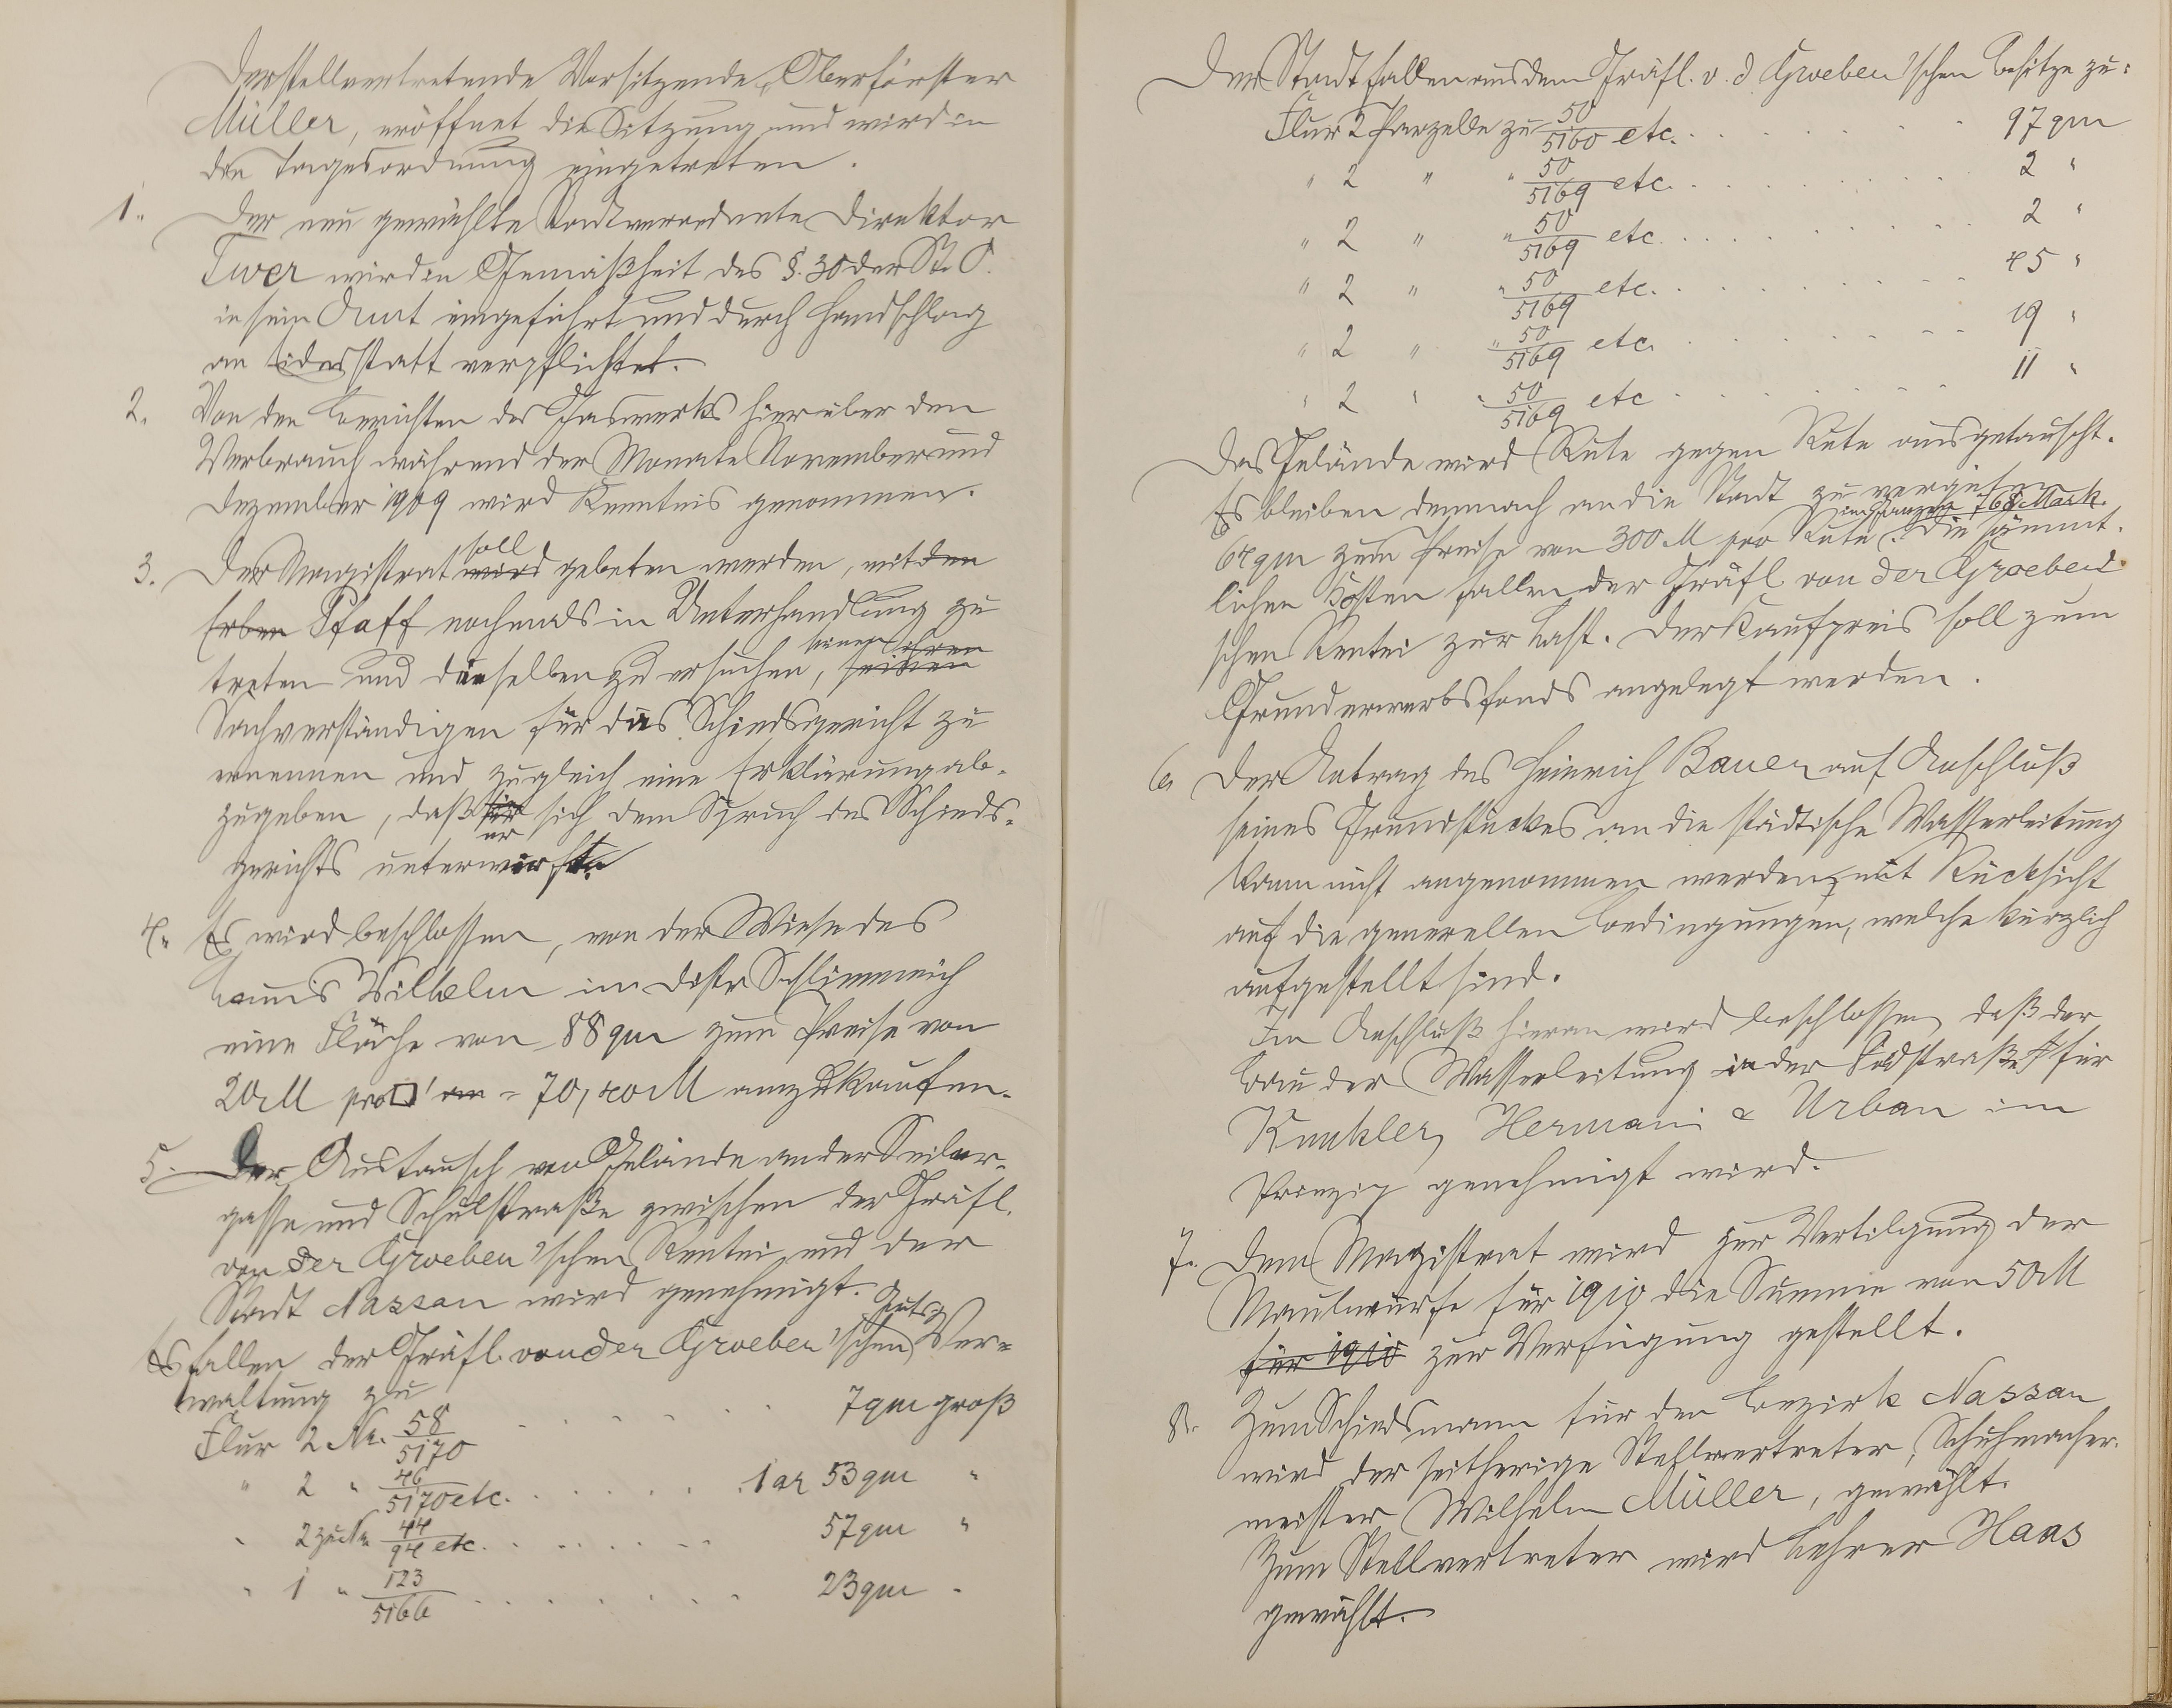 Der stellvertretende Vorsitzende, Oberförster
Müller, eröffnet die Sitzung und wird in
die Tagesordnung eingetreten.
1. Der neu gewählte Stadtverordnete Direktor
Twer wird in Gemäßheit des §. 30 der St. O.
in sein Amt eingeführt und durch Handschlag
an Eidesstatt verpflichtet.
2. Von den Berichten des Gaswerks hier über den
Verbrauch während der Monate November und
Dezember 1909 wird Kenntnis genommen.
3. Der Magistrat wird soll gebeten werden, mit den
Erben Pfaff nochmals in Unterhandlung zu
treten und denselben zu ersuchen, seinen ihren einen
Sachverständigen für das Schiedsgericht zu
ernennen und zugleich eine Erklärung ab-
zugeben, daß sie er sich dem Spruch des Schieds-
gerichts unterwirft.
4. Es wird beschlossen, von der Wiese des
Wilhelm im Distr.
eine Fläche von 88 qm zum Preise von
20 M pro □' = 70,40 M anzukaufen.
5. Der Austausch von Gelände an der Seiler-
gasse und Schulstraße zwischen der Gräfl.
von der Groeben'schen Rentei und der
Stadt Nassau wird genehmigt.
Es fallen der Gräfl. von der Groeben'schen Guts- Ver-
waltung zu
Flur 2 Nr. 58/5170 . . . . . 7 qm groß
" 2 " 46/5170 etc. . . . . . 1 ar 53 qm "
" 2 zu Nr. 44/94 etc. . . . . . 57 qm "
" 1 " 123/5166 . . . . . 23 qm "
Der Stadt fallen aus dem Gräfl. v. d. Groeben'schen Besitze zu:
Flur 2 Parzelle zu 50/5160 etc. . . . . . 97 qm
" 2 " " 50/5169 etc. . . . . . 2 "
" 2 " " 50/5169 etc. . . . . . 2 "
" 2 " " 50/5169 etc. . . . . . 45 "
" 2 " " 50/5169 etc. . . . . . 19 "
" 2 " " 50/5169 etc . . . . . 11 "
Das Gelände wird Rute gegen Rute ausgetauscht.
Es bleiben demnach an die Stadt zu vergüten
64 qm zum Preise von 300 M pro Rute im Ganzen 768 Mark. Die sämmt-
lichen Kosten fallen der Gräfl. von der Groeben'
schen Rentei zur Last. Der Kaufpreis soll zum
Grunderwerbsfonds angelegt werden.
6. Der Antrag des Heinrich Bauer auf Anschluß
seines Grundstückes an die städtische Wasserleitung
kann nicht angenommen werden, mit Rücksicht
auf die generellen Bedingungen, welche kürzlich
aufgestellt sind.
Im Anschluß hieran wird beschlossen, daß der
Bau der Wasserleitung in der Südstraße für
Kunkler, Hermani & Urban im
Prinzip genehmigt wird.
7. Dem Magistrat wird zur Vertilgung der
Maulwürfe für 1910 die Summe von 50 M
für 1910 zur Verfügung gestellt.
8. Zum Schiedsmann für den Bezirk Nassau
wird der seitherige Stellvertreter, Schuhmacher-
meister Wilhelm Müller, gewählt.
Zum Stellvertreter wird Lehrer Haas
gewählt.